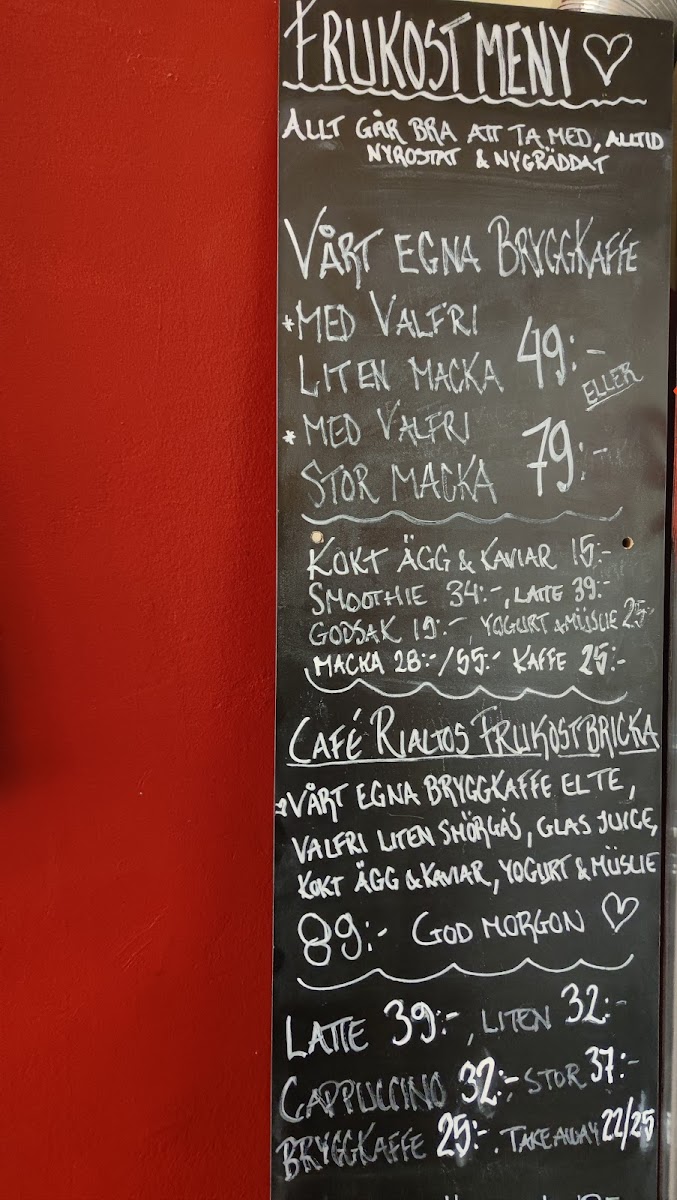 FRUKOST MENY ♡
ALLT GÅR BRA ATT TA MED, ALLTID
NYROSTAT & NYGRÄDDAT
VÅRT EGNA BRYGGKAFFE
*MED VALFRI
LITEN MACKA 49:-
ELLER
*MED VALFRI
STOR MACKA 79:-
KOKT ÄGG & KAVIAR 15:-
SMOOTHIE 34:-, LATTE 39:-
GODSAK 19:-, YOGURT & MÜSLIE 25:-
MACKA 28:-/55:- KAFFE 25:-
CAFÉ RIALTOS FRUKOSTBRICKA
*VÅRT EGNA BRYGGKAFFE EL TE,
VALFRI LITEN SMÖRGÅS, GLAS JUICE,
KOKT ÄGG & KAVIAR, YOGURT & MÜSLIE
89:- GOD MORGON ♡
LATTE 39:-, LITEN 32:-
CAPPUCCINO 32:-, STOR 37:-
BRYGGKAFFE 25:-. TAKE AWAY 22/25